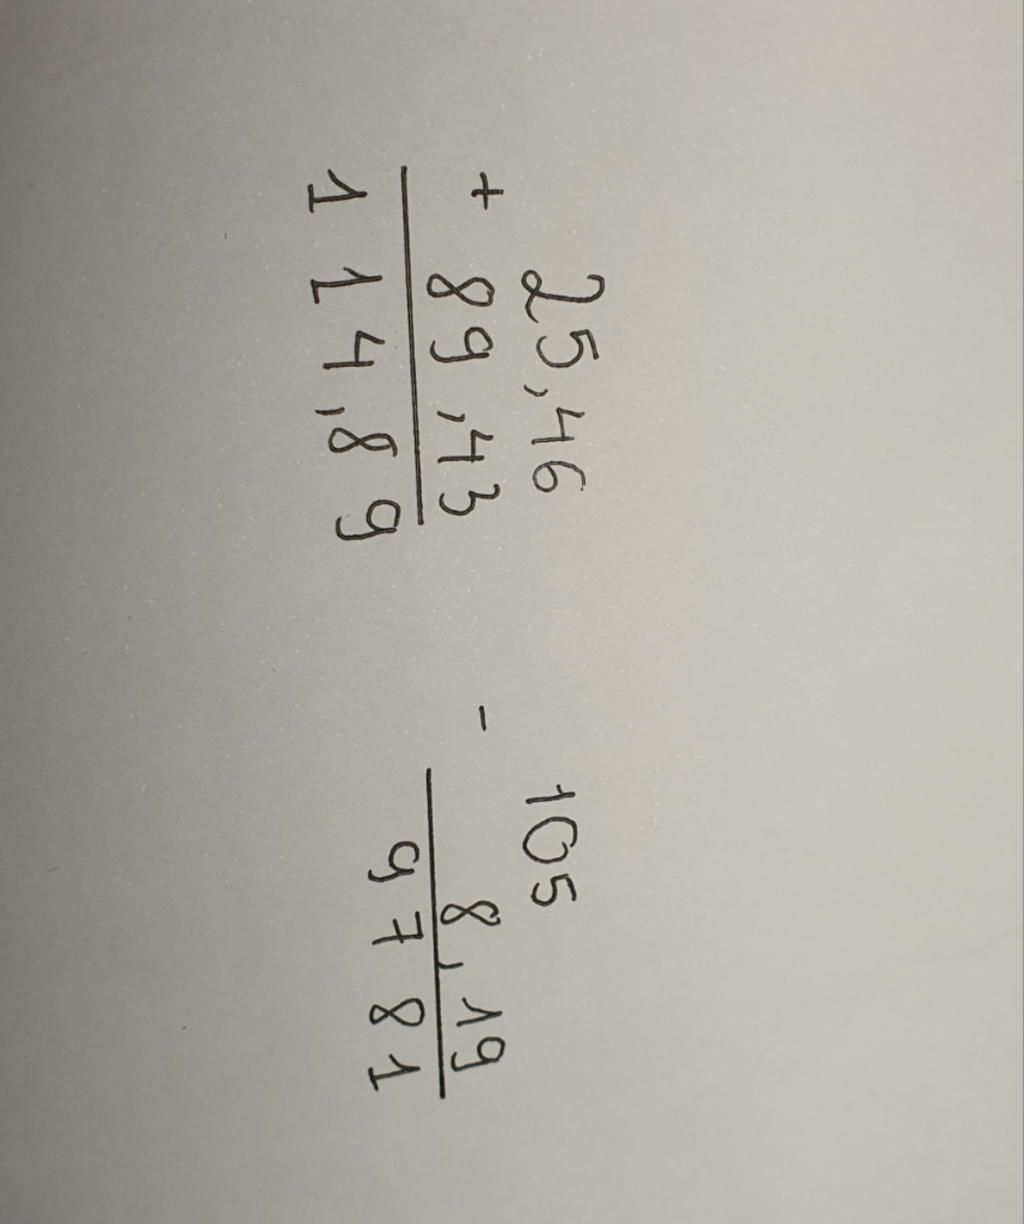 25,46
+ 89,43
114,89
105
- 8,19
9781